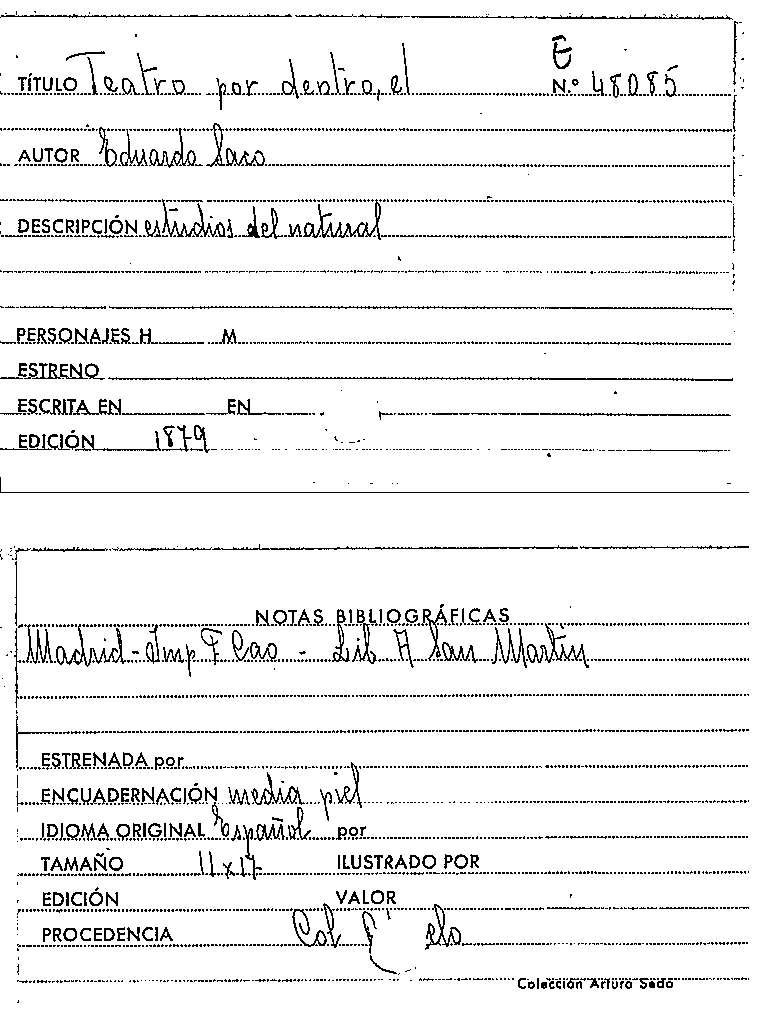 E
TÍTULO Teatro por dentro, el N.º 48085
AUTOR Eduardo Saco
DESCRIPCIÓN estudios del natural
PERSONAJES H M
ESTRENO
ESCRITA EN EN
EDICIÓN 1879
NOTAS BIBLIOGRÁFICAS
Madrid - Imp F Cao - Lib A San Martin
ESTRENADA por
ENCUADERNACIÓN media piel
IDIOMA ORIGINAL Español por
TAMAÑO 11 x 17 ILUSTRADO POR
EDICIÓN VALOR
PROCEDENCIA Col
Colección Arturo Sedó